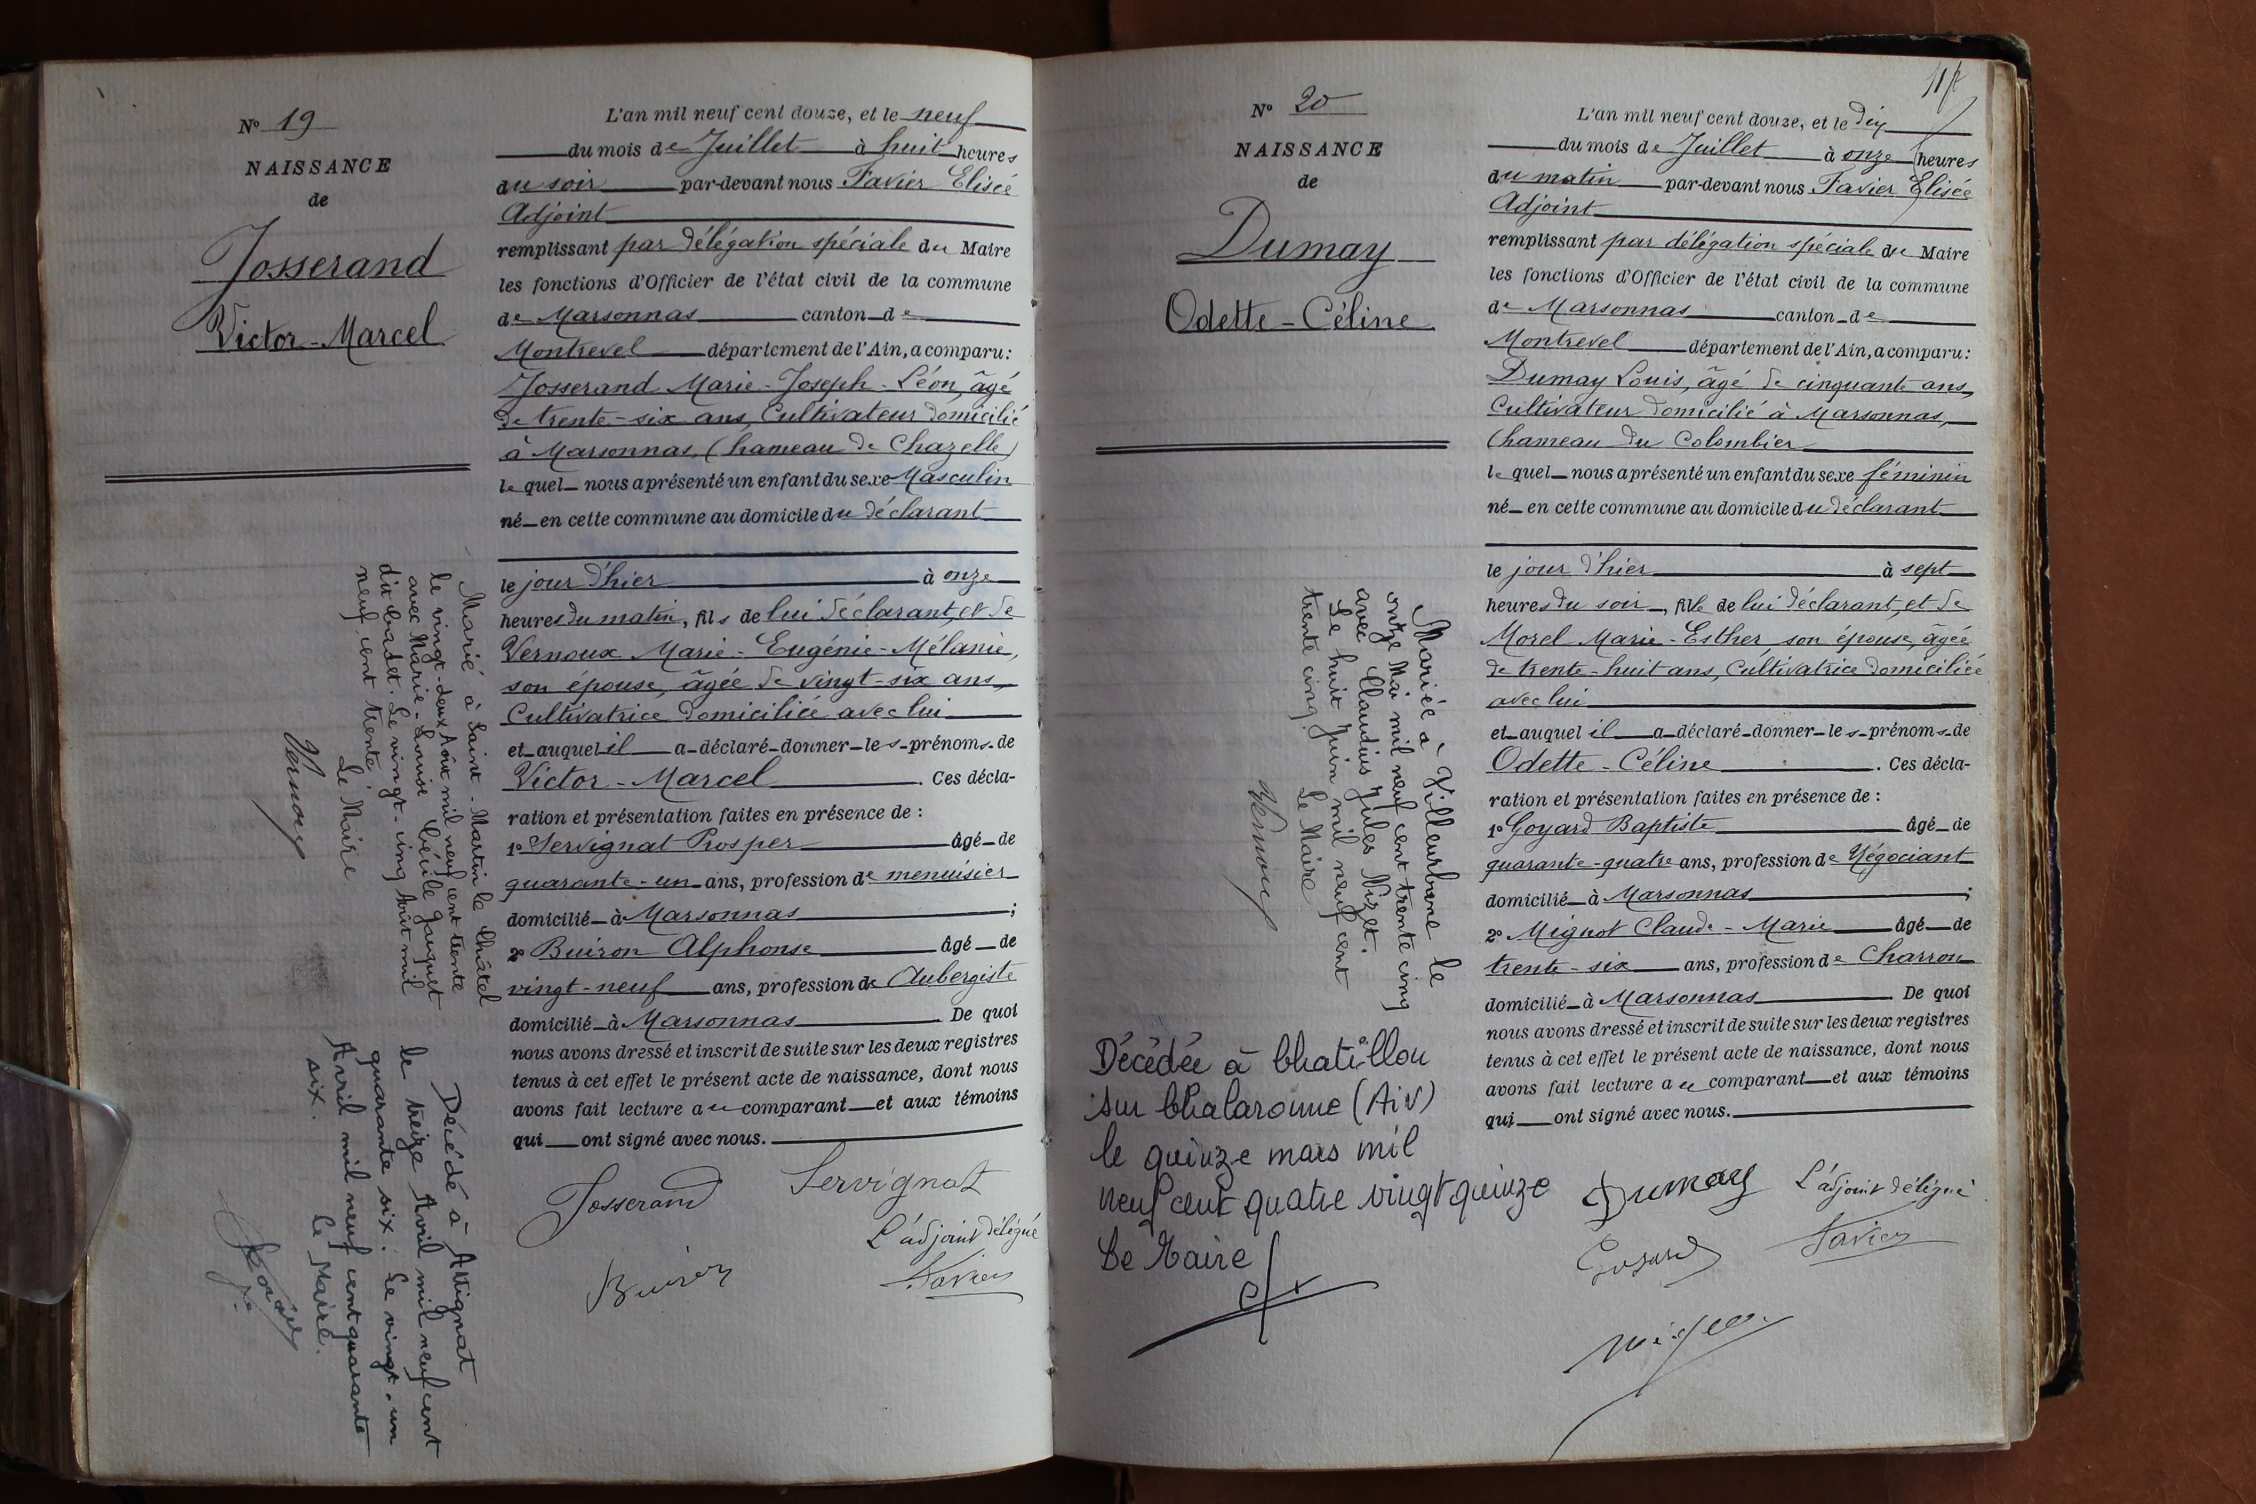 N° 19
NAISSANCE
de
Josserand
Victor-Marcel
L'an mil neuf cent douze, et le neuf
du mois de Juillet à huit heures
du soir par-devant nous Favier Elisée
Adjoint
remplissant par délégation spéciale du Maire
les fonctions d'Officier de l'état civil de la commune
de Marsonnas canton de
Montrevel département de l'Ain, a comparu :
Josserand Marie-Joseph-Léon, âgé
de trente-six ans, Cultivateur domicilié
à Marsonnas, (hameau de Chazelle)
le quel nous a présenté un enfant du sexe Masculin
né en cette commune au domicile du déclarant
le jour d'hier à onze
heures du matin, fils de lui déclarant, et de
Vernoux Marie-Eugénie-Mélanie,
son épouse, âgée de vingt-six ans,
Cultivatrice domiciliée avec lui
et auquel il a déclaré donner les prénoms de
Victor-Marcel. Ces décla-
ration et présentation faites en présence de :
1° Servignat Prosper âgé de
quarante-un ans, profession de menuisier
domicilié à Marsonnas ;
2° Buiron Alphonse âgé de
vingt-neuf ans, profession de Aubergiste
domicilié à Marsonnas De quoi
nous avons dressé et inscrit de suite sur les deux registres
tenus à cet effet le présent acte de naissance, dont nous
avons fait lecture au comparant et aux témoins
qui ont signé avec nous.
Josserand
Servignat
L'adjoint délégué
Buiron
Favier
Marié à Saint-Martin le Châtel
le vingt-deux Août mil neuf cent trente
avec Marie-Louise Cécile Jacquet
dit badet. Le vingt-cinq Août mil
neuf cent trente
Le Maire
Vernoux
Décédé à Attignat
le treize Avril mil neuf cent
quarante six. Le vingt-un
Avril mil neuf cent quarante
six.
Le Maire.
N° 20
NAISSANCE
de
Dumay
Odette-Céline
117
L'an mil neuf cent douze, et le dix
du mois de Juillet à onze heures
du matin par-devant nous Favier Elisée
Adjoint
remplissant par délégation spéciale du Maire
les fonctions d'Officier de l'état civil de la commune
de Marsonnas canton de
Montrevel département de l'Ain, a comparu :
Dumay Louis, âgé de cinquante ans,
Cultivateur domicilié à Marsonnas,
(hameau du Colombier
le quel nous a présenté un enfant du sexe féminin
né en cette commune au domicile du déclarant
le jour d'hier à sept
heures du soir, fille de lui déclarant, et de
Morel Marie-Esther son épouse, âgée
de trente-huit ans, Cultivatrice domiciliée
avec lui
et auquel il a déclaré donner les prénoms de
Odette-Céline. Ces décla-
ration et présentation faites en présence de :
1° Goyard Baptiste âgé de
quarante-quatre ans, profession de Négociant
domicilié à Marsonnas ;
2° Mignot Claude-Marie âgé de
trente-six ans, profession de Charron
domicilié à Marsonnas De quoi
nous avons dressé et inscrit de suite sur les deux registres
tenus à cet effet le présent acte de naissance, dont nous
avons fait lecture au comparant et aux témoins
qui ont signé avec nous.
Dumay
L'adjoint délégué
Goyard
Favier
Mariée à Villeurbane le
onze Mai mil neuf cent trente cinq
avec Claudius Jules Nizet.
Le huit Juin mil neuf cent
trente cinq. Le Maire
Vernoux
Décédée à Chatillon
sur Chalaronne (Ain)
le quinze mars mil
neuf cent quatre vingt quinze
Le Maire